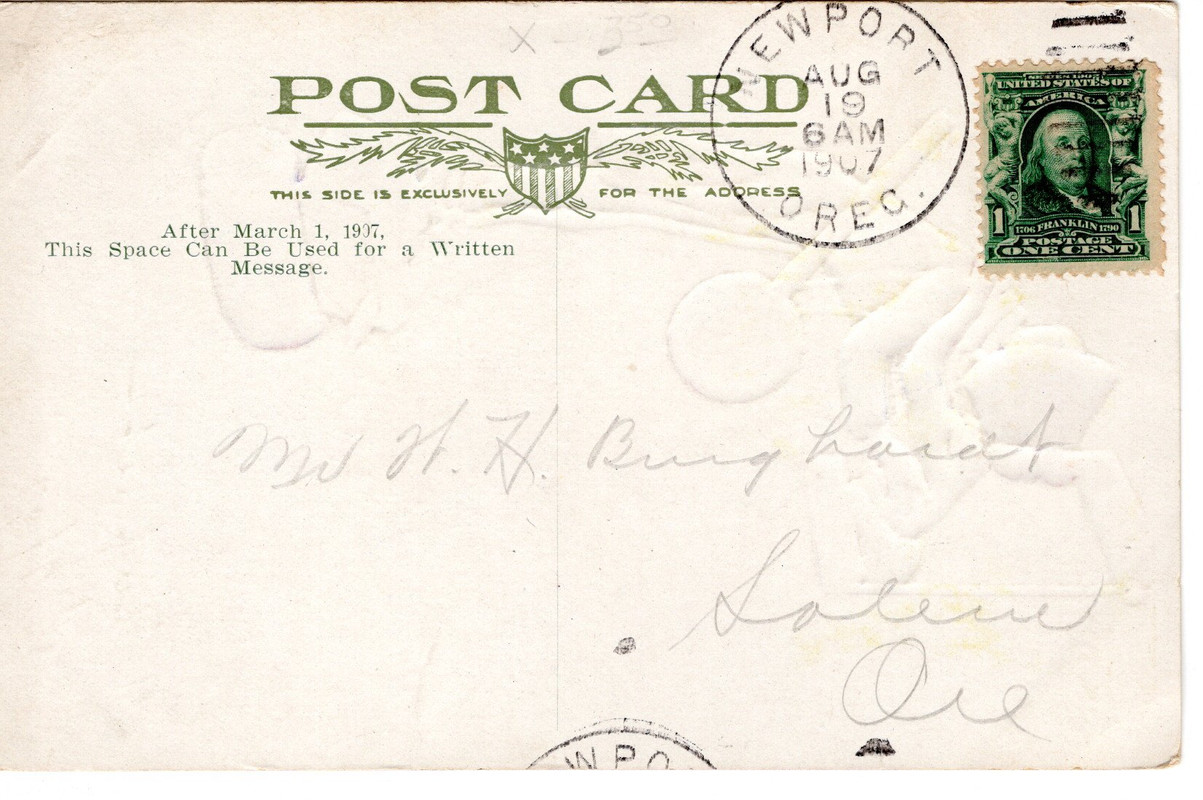 X 350
POST CARD
THIS SIDE IS EXCLUSIVELY FOR THE ADDRESS
After March 1, 1907,
This Space Can Be Used for a Written
Message.
NEWPORT
AUG
19
6 AM
1907
OREG.
SERIES 1902
UNITED STATES OF
AMERICA
1 1706 FRANKLIN 1790 1
POSTAGE
ONE CENT
Mr W. H. Burghardt
Salem
Ore
WPO